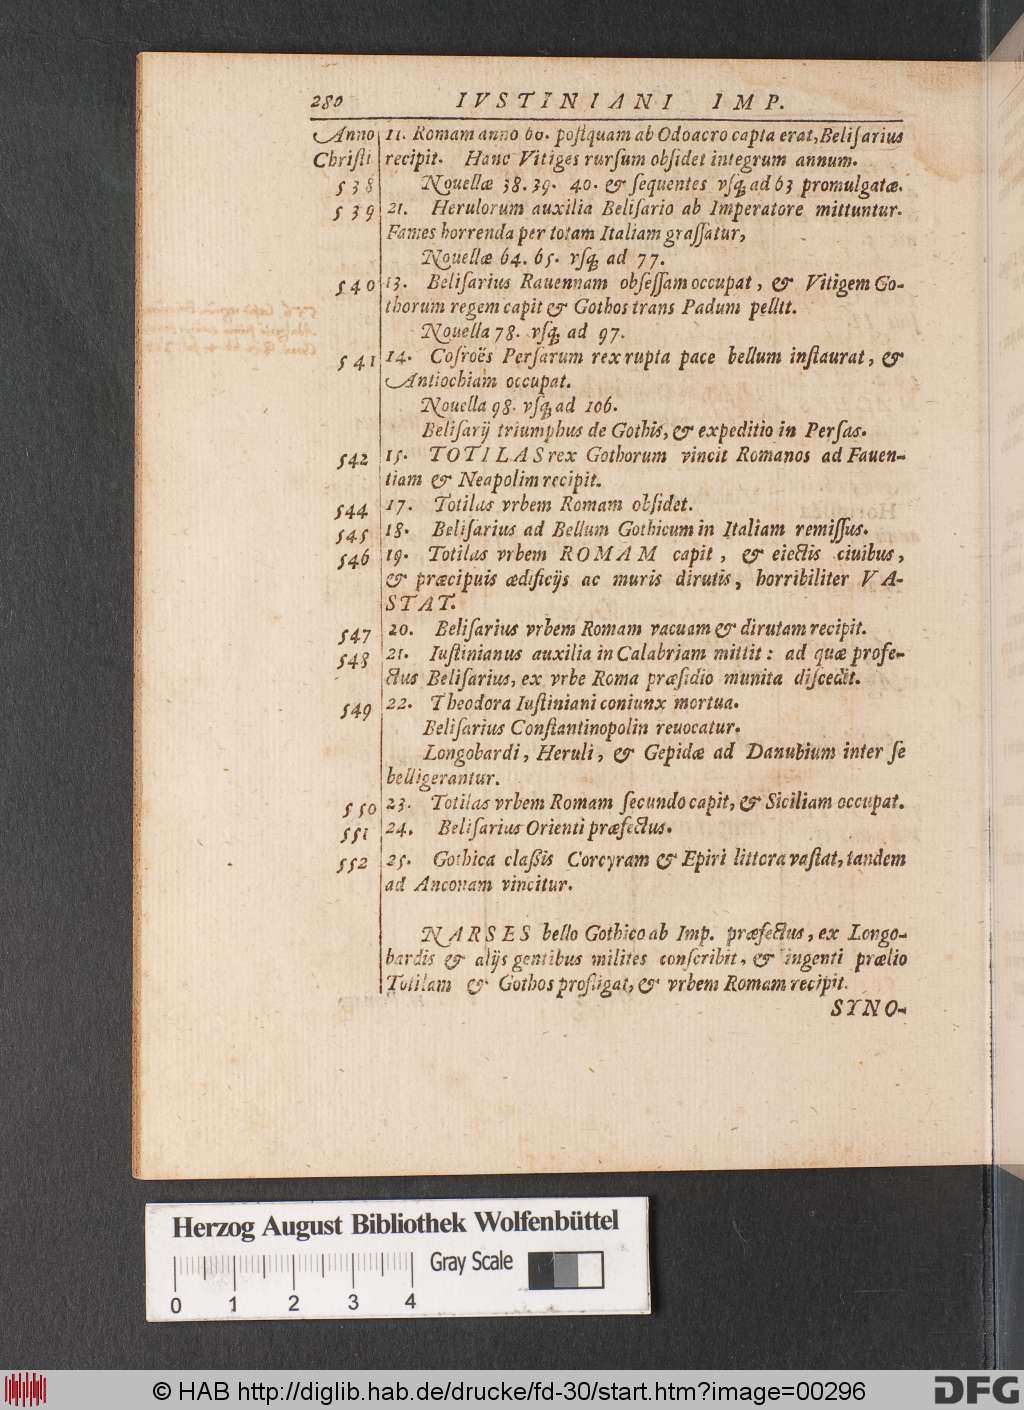 280 IVSTINIANI IMP.
Anno 11. Romam anno 60. poſtquam ab Odoacro capta erat, Beliſarius
Chriſti recipit. Hanc Vitiges rurſum obſidet integrum annum.
538 Nouellæ 38. 39. 40. & ſequentes vſq; ad 63 promulgatæ.
539 21. Herulorum auxilia Beliſario ab Imperatore mittuntur.
Fames horrenda per totam Italiam graſſatur,
Nouellæ 64. 65. vſq; ad 77.
540 13. Beliſarius Rauennam obſeſſam occupat, & Vitigem Go-
thorum regem capit & Gothos trans Padum pellit.
Nouella 78. vſq; ad 97.
541 14. Coſroës Perſarum rex rupta pace bellum inſtaurat, &
Antiochiam occupat.
Nouella 98. vſq; ad 106.
Beliſarij triumphus de Gothis, & expeditio in Perſas.
542 15. TOTILAS rex Gothorum vincit Romanos ad Fauen-
tiam & Neapolim recipit.
544 17. Totilas vrbem Romam obſidet.
545 18. Beliſarius ad Bellum Gothicum in Italiam remiſſus.
546 19. Totilas vrbem ROMAM capit, & eiectis ciuibus,
& præcipuis ædificijs ac muris dirutis, horribiliter VA-
STAT.
547 20. Beliſarius vrbem Romam vacuam & dirutam recipit.
548 21. Iuſtinianus auxilia in Calabriam mittit: ad quæ profe-
ctus Beliſarius, ex vrbe Roma præſidio munita diſcedit.
549 22. Theodora Iuſtiniani coniunx mortua.
Beliſarius Conſtantinopolin reuocatur.
Longobardi, Heruli, & Gepidæ ad Danubium inter ſe
belligerantur.
550 23. Totilas vrbem Romam ſecundo capit, & Siciliam occupat.
551 24. Beliſarius Orienti præfectus.
552 25. Gothica claßis Corcyram & Epiri littora vaſtat, tandem
ad Anconam vincitur.
NARSES bello Gothico ab Imp. præfectus, ex Longo-
bardis & alijs gentibus milites conſcribit, & ingenti prælio
Totilam & Gothos profligat, & vrbem Romam recipit.
SYNO-
Herzog August Bibliothek Wolfenbüttel
Gray Scale
0 1 2 3 4
© HAB http://diglib.hab.de/drucke/fd-30/start.htm?image=00296
DFG